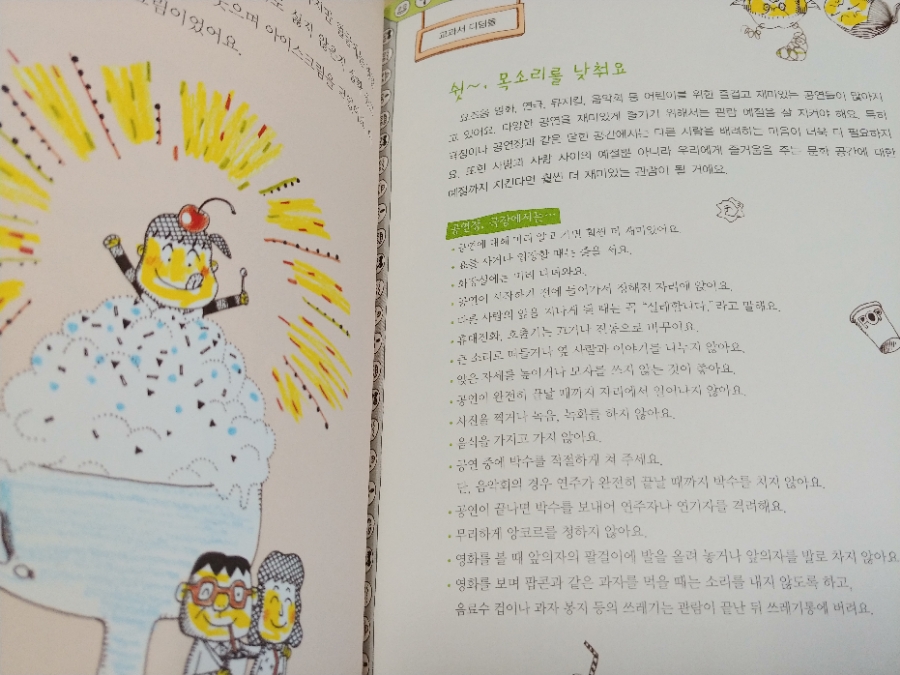 크림이었어요.
으며 아이스크림을
교과서 디딤돌
쉿~, 목소리를 낮춰요
요즈음 영화, 연극, 뮤지컬, 음악회 등 어린이를 위한 즐겁고 재미있는 공연들이 많아지
고 있어요. 다양한 공연을 재미있게 즐기기 위해서는 관람 예절을 잘 지켜야 해요. 특히
극장이나 공연장과 같은 닫힌 공간에서는 다른 사람을 배려하는 마음이 더욱 더 필요하지
요. 또한 사람과 사람 사이의 예절뿐 아니라 우리에게 즐거움을 주는 문화 공간에 대한
예절까지 지킨다면 훨씬 더 재미있는 관람이 될 거예요.
공연장, 극장에서는…
• 공연에 대해 미리 알고 가면 훨씬 더 재미있어요.
• 표를 사거나 입장할 때는 줄을 서요.
• 화장실에는 미리 다녀와요.
• 공연이 시작하기 전에 들어가서 정해진 자리에 앉아요.
• 다른 사람의 앞을 지나게 될 때는 꼭 “실례합니다.”라고 말해요.
• 휴대전화, 호출기는 끄거나 진동으로 바꾸어요.
• 큰 소리로 떠들거나 옆 사람과 이야기를 나누지 않아요.
• 앉은 자세를 높이거나 모자를 쓰지 않는 것이 좋아요.
• 공연이 완전히 끝날 때까지 자리에서 일어나지 않아요.
• 사진을 찍거나 녹음, 녹화를 하지 않아요.
• 음식을 가지고 가지 않아요.
• 공연 중에 박수를 적절하게 쳐 주세요.
단, 음악회의 경우 연주가 완전히 끝날 때까지 박수를 치지 않아요.
• 공연이 끝나면 박수를 보내어 연주자나 연기자를 격려해요.
• 무리하게 앙코르를 청하지 않아요.
• 영화를 볼 때 앞의자의 팔걸이에 발을 올려 놓거나 앞의자를 발로 차지 않아요.
• 영화를 보며 팝콘과 같은 과자를 먹을 때는 소리를 내지 않도록 하고,
음료수 컵이나 과자 봉지 등의 쓰레기는 관람이 끝난 뒤 쓰레기통에 버려요.